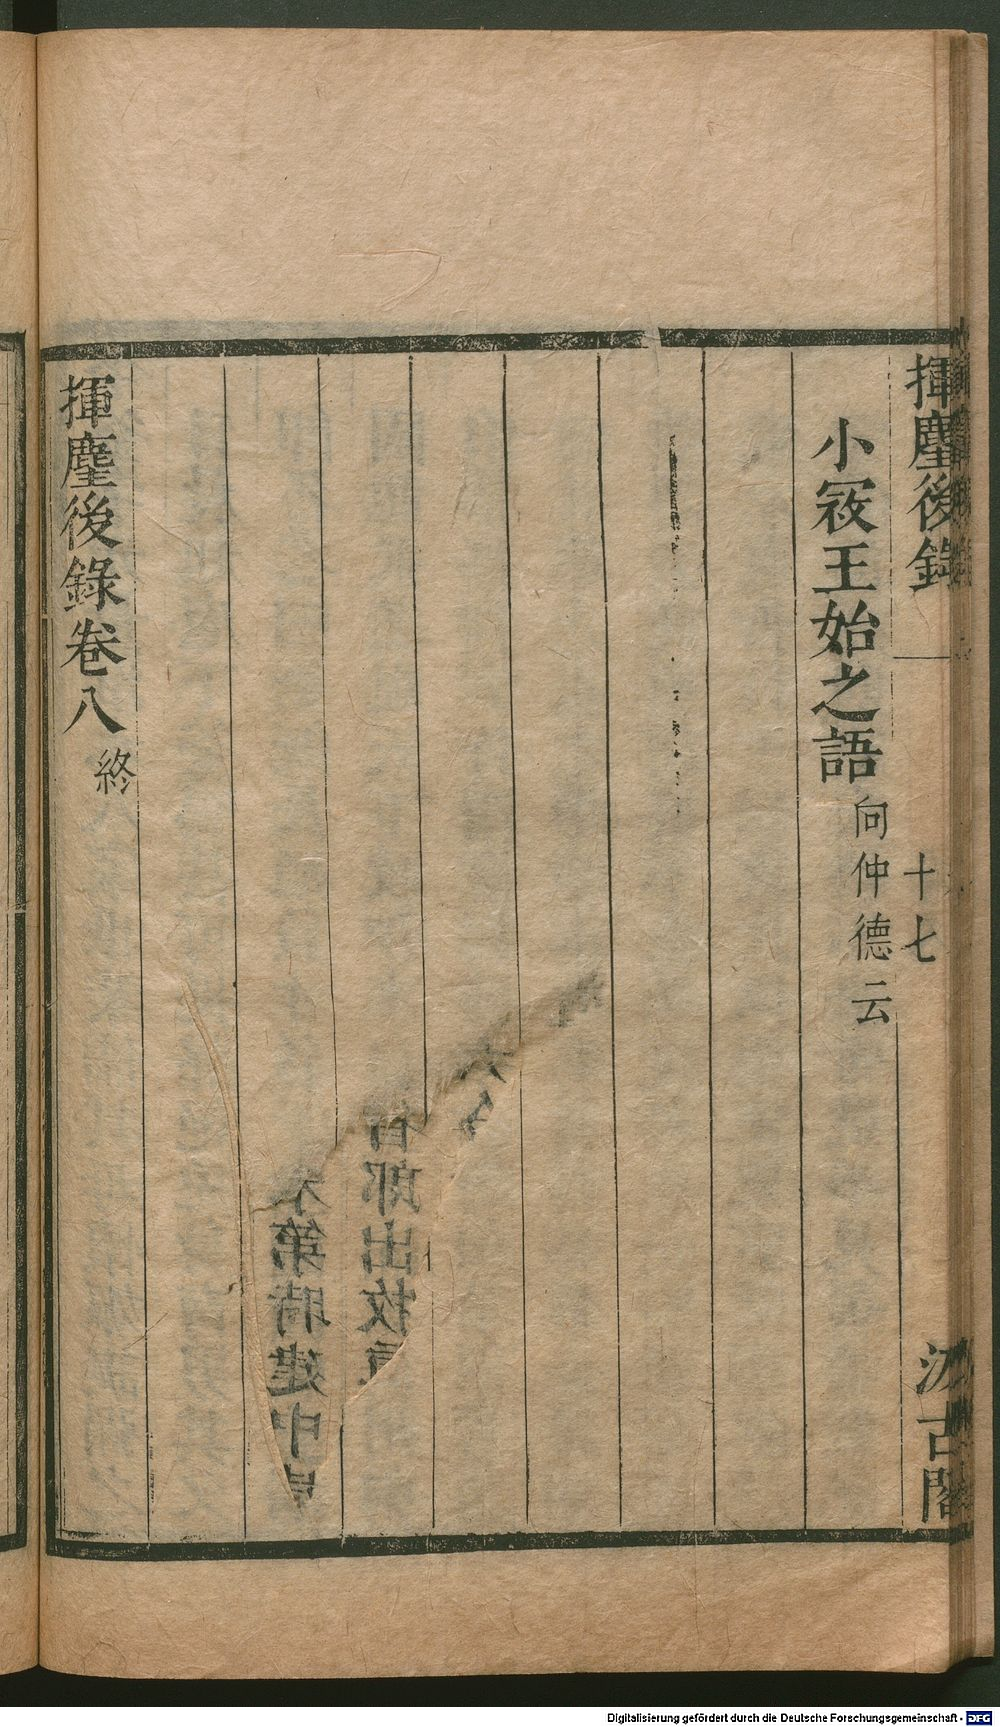 揮麈後錄
十七
汲古閣
小冦王始之語向仲德云
揮麈後錄卷八終
Digitalisierung gefördert durch die Deutsche Forschungsgemeinschaft - DFG